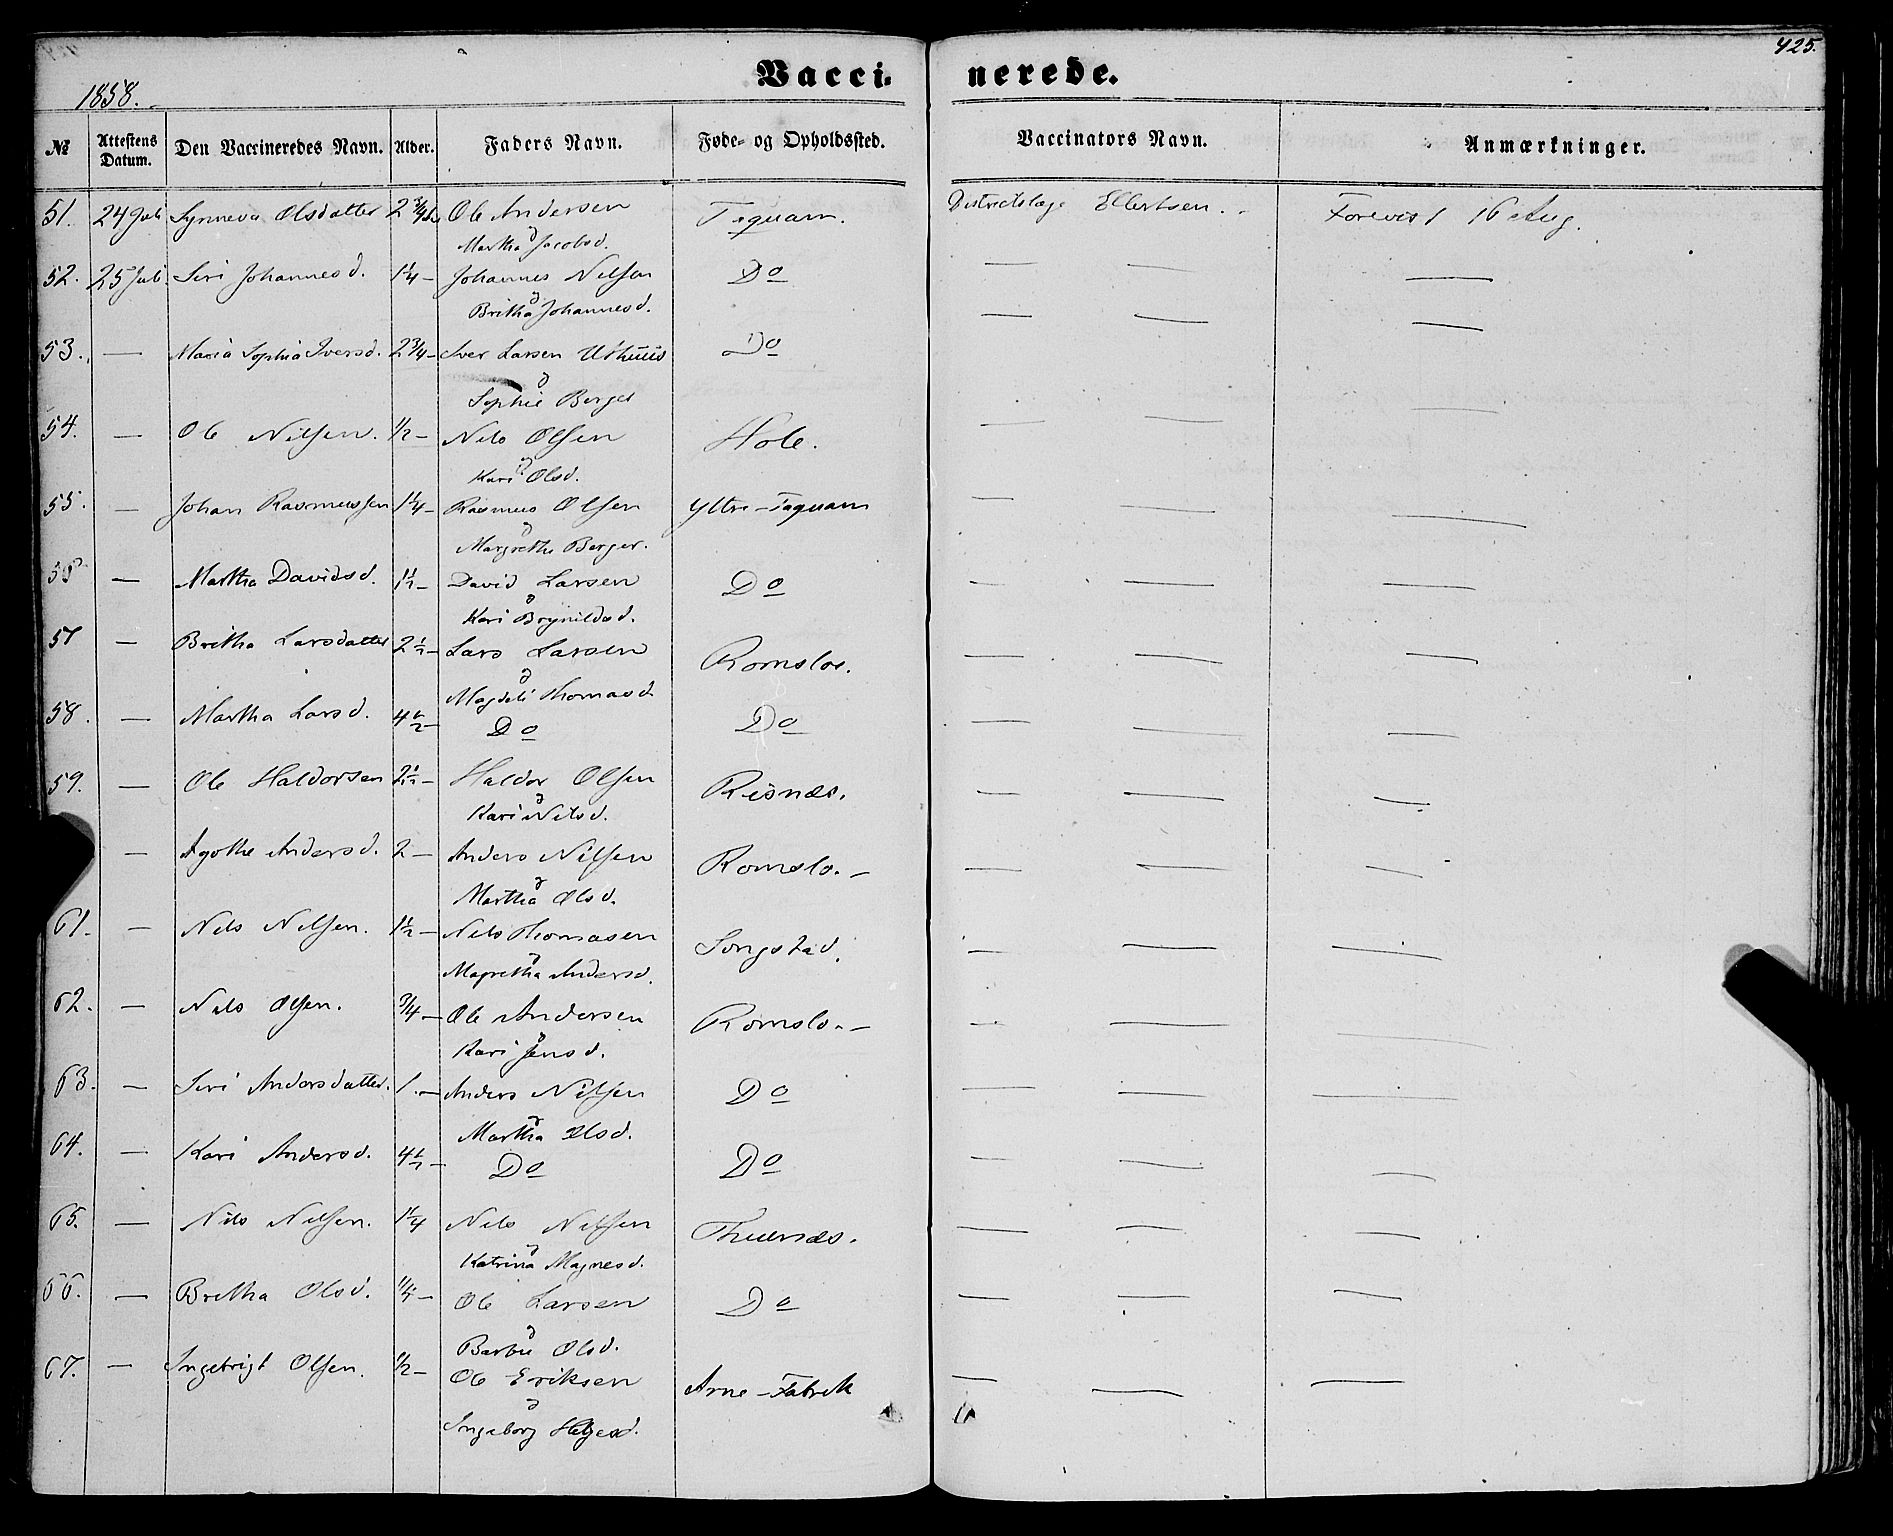 425.
1858.
Vaccinerede.
№ Attestens Datum. Den Vaccineredes Navn. Alder. Faders Navn. Føde- og Opholdssted. Vaccinators Navn. Anmærkninger.
51. 24 Juli Synneva Olsdatter 2 3/4 Ole Andersen Tequam. Districtslæge Ellertsen. Forevist 16 Aug.
Martha Jacobsd.
52. 25 Juli Siri Johannesd. 1 1/4 – Johannes Nilsen Do — — —
Britha Johannesd.
53. — Maria Sophia Iversd. 2 3/4 – Iver Larsen Do — — —
Sophie Berger
54. — Ole Nilsen. 1/2 – Nils Olsen Hole. — — —
Kari Olsd.
55. — Johan Rasmussen 1 1/4 – Rasmus Olsen Yttre-Tequam — — —
Margrethe Berger.
56 — Martha Davidsd. 1 1/2 – David Larsen Do — — —
Kari Brynildsd.
57 — Britha Larsdatter 2 1/2 – Lars Larsen Romslo. — — —
Magdeli Thomasd.
58. — Martha Larsd. 4 1/2 – Do Do — — —
59. — Ole Haldorsen 2 1/2 – Haldor Olsen Risnæs. — — —
Kari Nilsd.
— Agothe Andersd. 2 – Anders Nilsen Romslo. – — — —
Martha Olsd.
61. — Nils Nilsen. 1 1/2 – Nils Thomasen Songstad. — — —
Magretha Andersd.
62. — Nils Olsen. 3/4 – Ole Andersen Romslo. – — — —
Kari Jensd.
63. — Siri Andersdatter. 1. – Anders Nilsen Do — — —
Martha Olsd.
64. — Kari Andersd. 4 1/2 – Do Do — — —
65. — Nils Nilsen. 1 1/4 Nils Nilsen Thuenæs. — — —
Katrina Magnesd.
66. — Britha Olsd. 1/4 – Ole Larsen Do — — —
Olsd.
67. — Ingebrigt Olsen. 1/2 – Ole Eriksen Arne-Fabrik — — —
Ingeborg Helgesd.